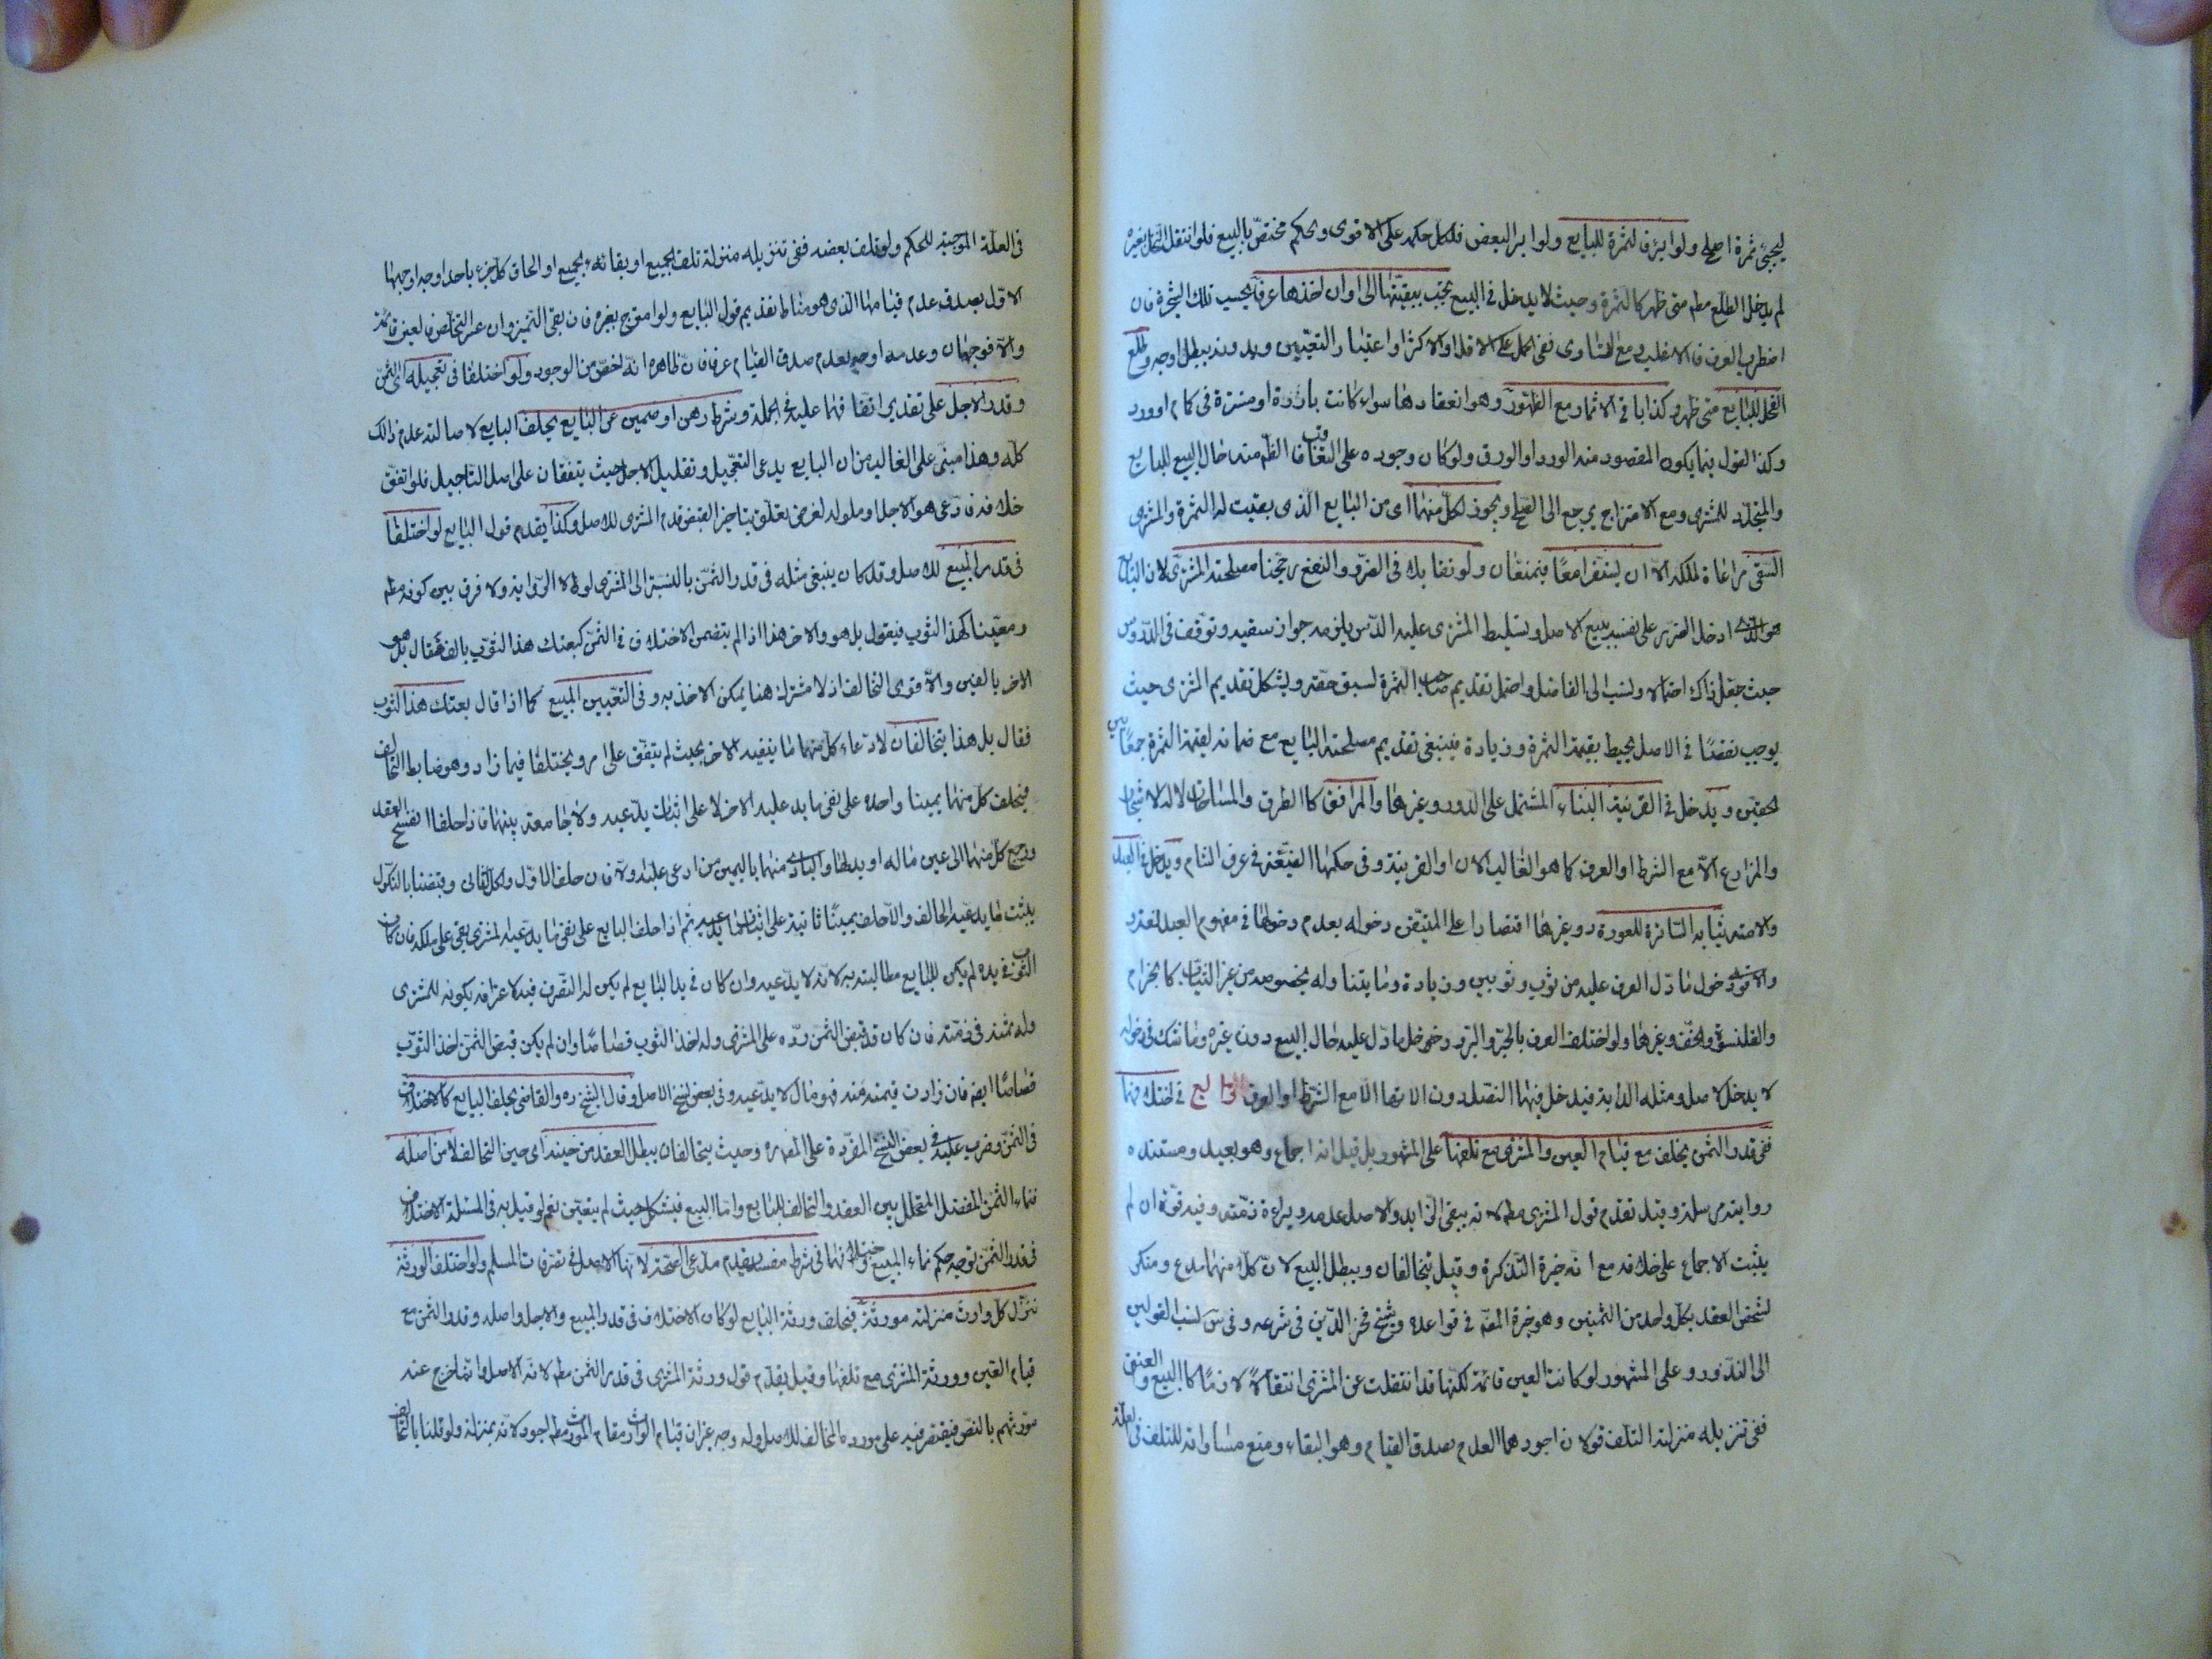 ليجيئ ثمرة اصلح ولو ابرت فالثمرة للبايع ولو ابر البعض فلكل حكمه على الاقوى والحكم مختص بالبيع فلو انتقل النخل بغيره
لم يدخل الطلع مطم متى ظهر كالثمرة وحيث لا يدخل في البيع يجب تبقيتها الى اوان اخذها عرفا بحسب تلك الشجرة فان
اضطرب العرف فالاغلب ومع التساوى ففى الحمل على الاقل او الاكثر او اعتبار التعيين وبدونه يبطل اوجه وطلع
الفحل للبايع متى ظهر وكذا باقى الاثمار مع الظهور وهو انعقادها سواء كانت بارزة او مستترة فى كمام او ورد
وكذا القول فيما يكون المقصود منه الورد او الورق ولو كان وجوده على التعاقب فالظم منه حال البيع للبايع
والمتجدد للمشترى ومع الامتزاج يرجع الى الصلح ويجوز لكل منهما اى من البايع الذى بقيت له الثمرة والمشترى
السقى مراعاة لملكه الا ان يستضرا معا فيمنعان ولو تقابلا فى الضرر والنفع رجحنا مصلحة المشترى لان البايع
هو الذى ادخل الضرر على نفسه ببيع الاصل وتسليط المشترى عليه الذى يلزمه جواز سقيه وتوقف فى الدروس
حيث جعل ذلك احتمالا ونسب الى الفاضل واحتمل تقديم صاحب الثمرة لسبق حقه ويشكل تقديم المشترى حيث
يوجب نقصا فى الاصل يحيط بقيمة الثمرة وزيادة فينبغى تقديم مصلحة البايع مع ضمانه لقيمة الثمرة جمعا بين
الحقين ويدخل فى القرية البناء المشتمل على الدور وغيرها والمرافق كالطرق والساحات لا الاشجار
والمزارع الا مع الشرط او العرف كما هو الغالب الان او القرينة وفى حكمها الضيعة فى عرف الشام ويدخل فى العبد
والامة ثيابه الساترة للعورة دون غيرها اقتصارا على المتيقن دخوله بعدم دخولها فى مفهوم العبد لغة
والاقوى دخول ما دل العرف عليه من ثوب وثوبين وزيادة وما يتناوله بخصوصه من غير الثياب كالحزام
والقلنسوة والخف وغيرها ولو اختلف العرف بالحر والبرد دخل ما دل عليه حال البيع دون غيره وما شك فى دخوله
لا يدخل للاصل ومثله الدابة فيدخل فيها النعل دون الاتها الا مع الشرط او العرف الرابع فى اختلافهما
ففى قدر الثمن يحلف مع قيام العين والمشترى مع تلفها على المشهور بل قيل انه اجماع وهو بعيد ومستنده
رواية مرسلة وقيل تقدم قول المشترى مطم لانه ينفى الزايد والاصل عدمه وبراءة ذمته وفيه قوة ان لم
يثبت الاجماع على خلافه مع انه خيرة التذكرة وقيل يتحالفان ويبطل البيع لان كلا منهما مدع ومنكر
لتشخص العقد بكل واحد من الثمنين وهو خيرة المص فى قواعده وشيخ فخر الدين فى شرحه وفى س نسب القولين
الى الندور وعلى المشهور لو كانت العين قائمة لكنها قد انتقلت عن المشترى انتقالا لازما كالبيع والعتق
ففى تنزيله منزلة التلف قولان اجودهما العدم بصدق القيام وهو البقاء ومنع مساواته للتلف فى العلة
فى العلة الموجبة للحكم ولو تلف بعضه ففى تنزيله منزلة تلف الجميع او بقائه الجميع او الحاق كل جزء باحد اوجه اوجهها
الاول بصدق عدم قيامها الذى هو مناط تقديم قول البايع ولو امتزج بغيره فان بقى التميز وان عسر التخلص فالعين قائمة
والا فوجهان وعدمه اوجه بعدم صدق القيام عرفا فان ظاهره انه اخص من الوجود ولو اختلفا فى تعجيله اى الثمن
وقدر الاجل على تقدير اتفاقهما عليه فى الجملة وشرط رهن او ضمين عن البايع يحلف البايع لاصالة عدم ذلك
كله وهذا مبنى على الغالب من ان البايع يدعى التعجيل وتقليل الاجل حيث يتفقان على اصل التاجيل فلو اتفق
خلافه فادعى هو الاجل او طوله لغرض يتعلق بتاخير القبض قدم المشترى للاصل وكذا يقدم قول البايع لو اختلفا
فى قدر المبيع للاصل وقد كان ينبغى مثله فى قدر الثمن بالنسبة الى المشترى لولا الرواية ولا فرق بين كونه مطم
ومعينا كهذا الثوب فيقول بل هو والاخر هذا اذا لم يتضمن الاختلاف فى الثمن كبعتك هذا الثوب بالف فقال بل هو
الاخر بالفين والا قوى التحالف اذ لا مشترك هنا يمكن الاخذ به وفى التعيين المبيع كما اذا قال بعتك هذا الثوب
فقال بل هذا يتحالفان لادعاء كل منهما ما ينفيه الاخر بحيث لم يتفق على امر ويختلفا فيما زاد وهو ضابط التحالف
فيحلف كل منهما يمينا واحدة على نفى ما يدعيه الاخر لا على اثبات ما يدعيه ولا جامعة بينهما فاذا حلفا انفسخ العقد
ورجع كل منهما الى عين ماله او بدلها والبادى منهما باليمين من ادعى عليه اولا فان حلف الاول ونكل الثانى وقضينا بالنكول
يثبت ما يدعيه الحالف والا حلف يمينا ثانية على اثبات ما يدعيه ثم اذا حلف البايع على نفى ما يدعيه المشترى بقى على ملكه فان كان
الثوب فى يده لم يكن للبايع مطالبته به لانه لا يدعيه وان كان فى يد البايع لم يكن له التصرف فيه لاعترافه بكونه للمشترى
وله ثمنه فى ذمته فان كان قد قبض الثمن رده على المشترى وله اخذ الثوب قصاصا وان لم يكن قبض الثمن اخذ الثوب
قصاصا ايضم فان زادت قيمته عنه فهو مال لا يدعيه وفى بعض نسخ الاصل وقال الشيخ ره والقاضى يحلف البايع كالاختلاف
فى الثمن وضرب عليه فى بعض النسخ المقروة على المص ره وحيث يتحالفان يبطل العقد من حينه اى حين التحالف لا من اصله
فنماء الثمن المنفصل المتخلل بين العقد والتحالف للبايع واما المبيع فيشكل حيث لم يتعين نعم لو قيل به فى المسئلة الاختلاف
فى قدر الثمن توجه حكم نماء المبيع واختلافهما فى شرط مفسد يقدم مدعى الصحة لانها الاصل فى تصرفات المسلم ولو اختلف الورثة
نزل كل وارث منزلة مورثه فيحلف ورثة البايع لو كان الاختلاف فى قدر المبيع والاجل واصله وقدر الثمن مع
قيام العين وورثة المشترى مع تلفها وقيل يقدم قول ورثة المشترى فى قدر الثمن مطم لانه الاصل وانما خرج عنه
مورثهم بالنص فيقتصر فيه على مورده المخالف للاصل وله وجه غير ان قيام الوارث مقام المورث مطم اجود لانه بمنزلته ولو قلنا بالتحالف